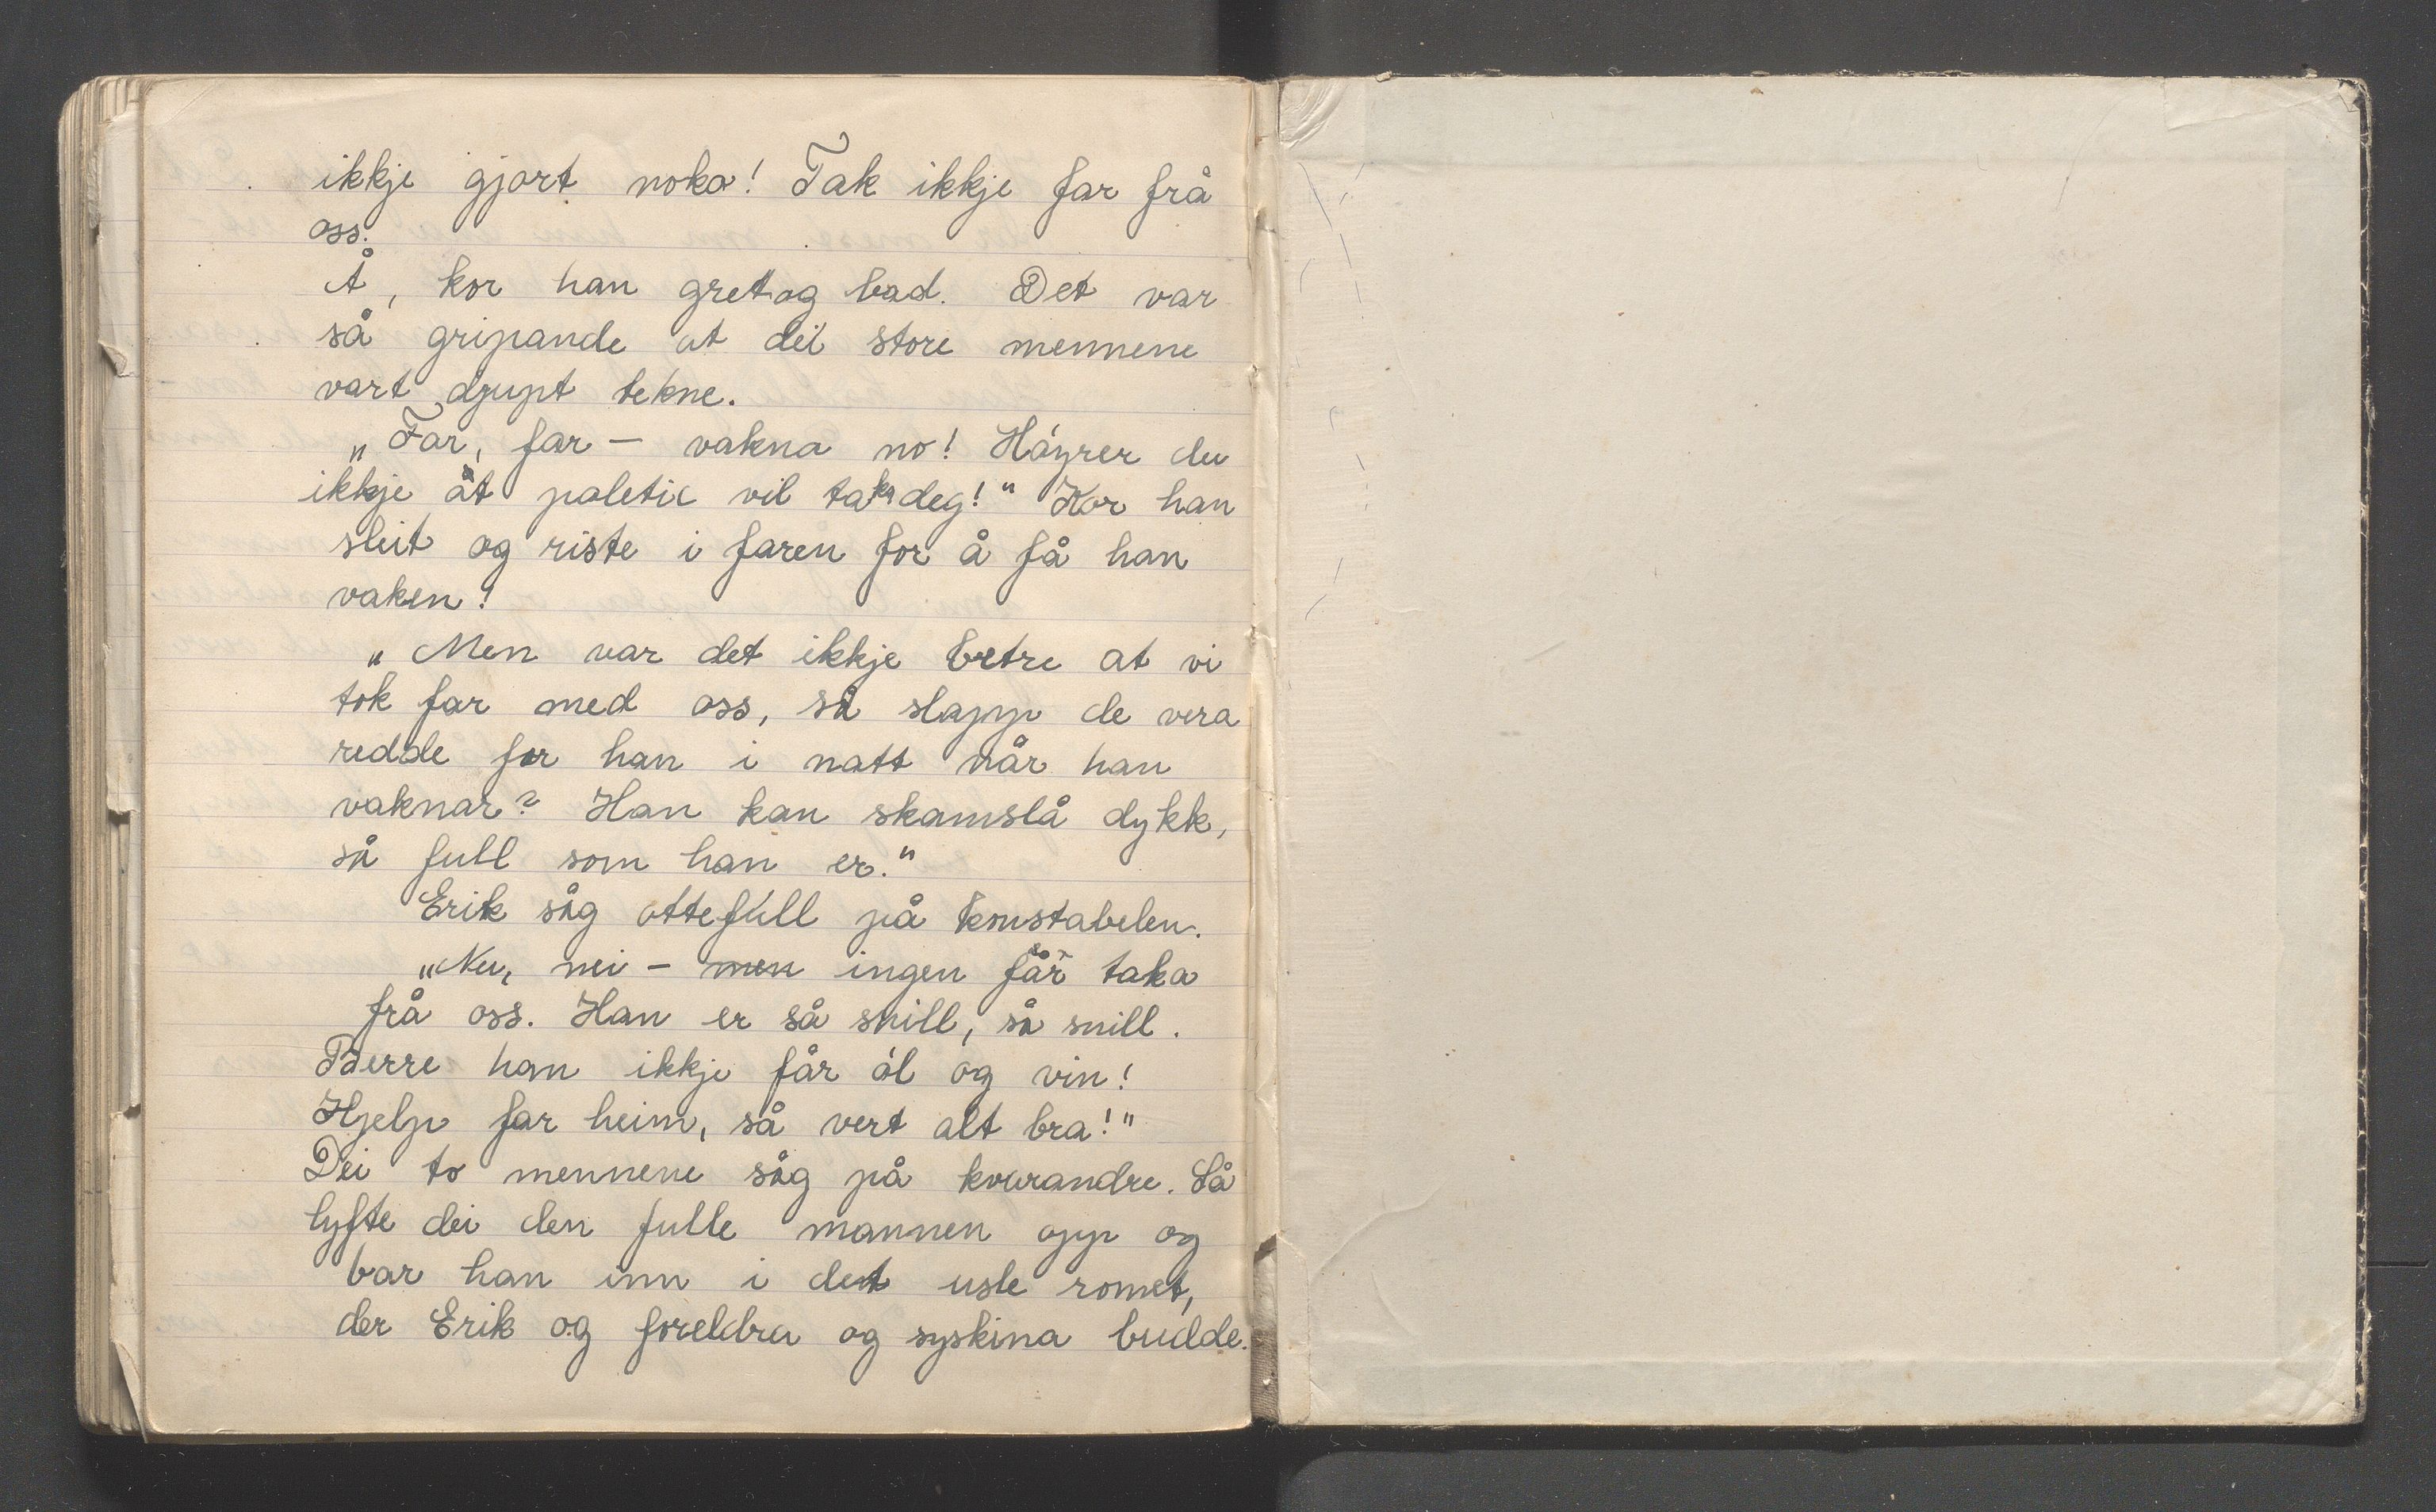 ikkje gjort noko! Tak ikkje far frå
oss.
Å, kor han gret og bad. Det var
så gripande at dei store mennene
vart djupt tekne.
„Far, far – vakna no! Høyrer du
ikkje at politie vil taka deg!" Kor han
sleit og riste i faren for å få han
vaken!
„Men var det ikkje betre at vi
tok far med oss, så slapp de vera
redde for han i natt når han
vaknar? Han kan skamslå dykk,
så full som han er."
Erik såg ottefull på konstabelen.
„Nei, nei – men ingen får taka
frå oss. Han er så snill, så snill.
Berre han ikkje får øl og vin!
Hjelp far heim, så vert alt bra!"
Dei to mennene såg på kvarandre. Så
lyfte dei den fulle mannen opp og
bar han inn i det usle romet,
der Erik og foreldra og syskina budde.